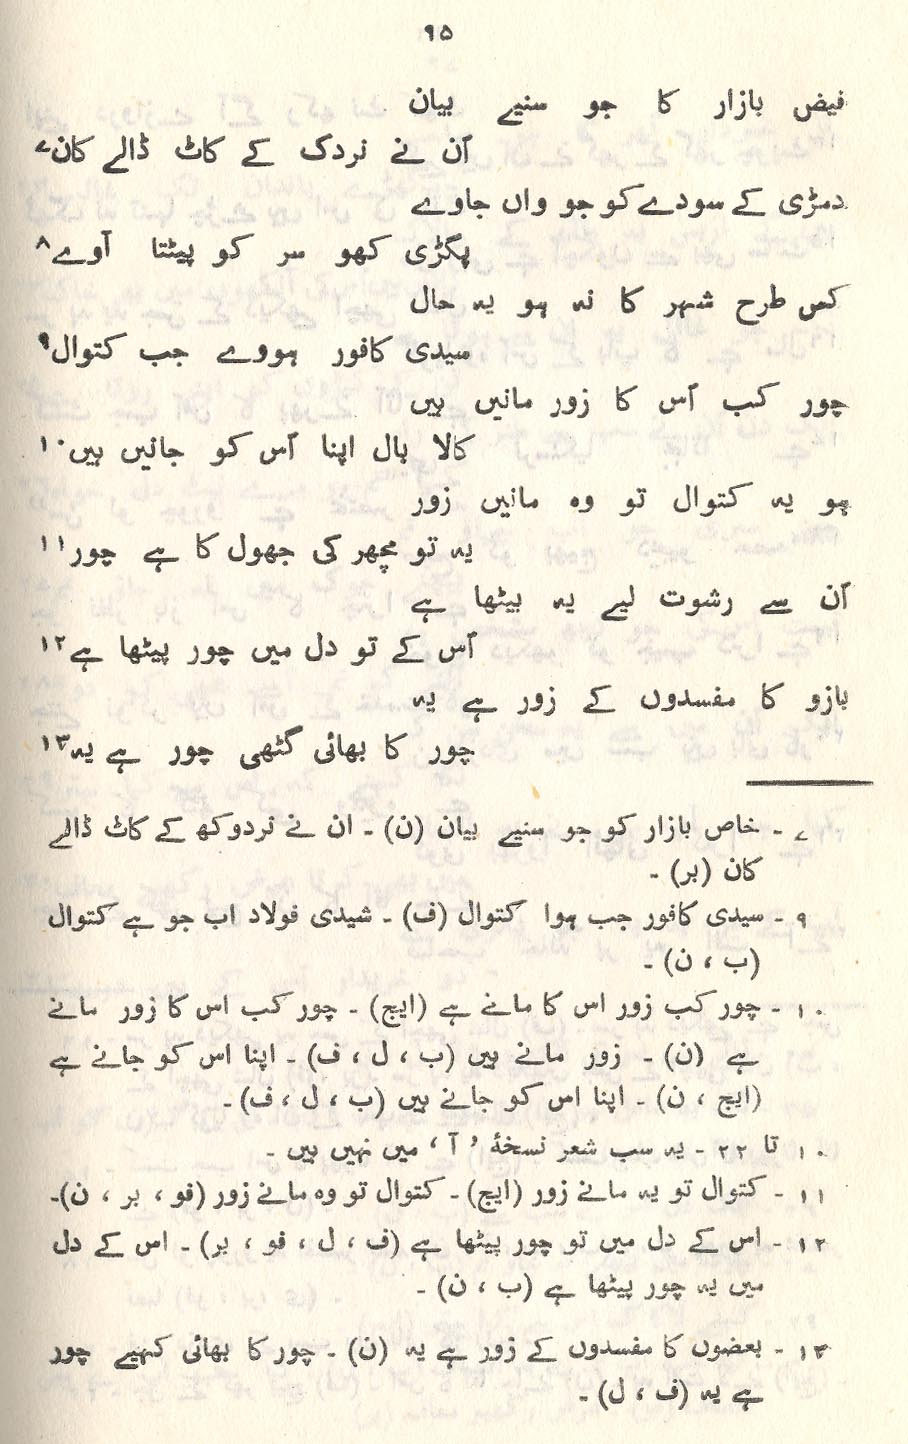 ۹۵
فیض بازار کا جو سنیے بیان
اُن نے نردک کے کاٹ ڈالے کان۷
دمڑی کے سودے کو جو واں جاوے
پگڑی کھو سر کو پیٹتا آوے۸
کس طرح شہر کا نہ ہو یہ حال
سیدی کافور ہووے جب کتوال۹
چور کب اُس کا زور مانیں ہیں
کالا بال اپنا اُس کو جانیں ہیں۱۰
ہو یہ کتوال تو وہ مانیں زور
یہ تو مچھر کی جھول کا ہے چور۱۱
اُن سے رشوت لیے یہ بیٹھا ہے
اُس کے تو دل میں چور پیٹھا ہے۱۲
بازو کا مفسدوں کے زور ہے یہ
چور کا بھائی گٹھی چور ہے یہ۱۳
۷ - خاص بازار کو جو سنیے بیان (ن) - ان نے نردوکھ کے کاٹ ڈالے
کان (بر) -
۹ - سیدی کافور جب ہوا کتوال (ف) - شیدی فولاد اب جو ہے کتوال
(ب ، ن) -
۱۰ - چور کب زور اس کا مانے ہے (ایچ) - چور کب اس کا زور مانے
ہے (ن) - زور مانے ہیں (ب ، ل ، ف) - اپنا اس کو جانے ہے
(ایچ ، ن) - اپنا اس کو جانے ہیں (ب ، ل ، ف) -
۱۰ تا ۲۲ - یہ سب شعر نسخۂ ’ آ ‘ میں نہیں ہیں -
۱۱ - کتوال تو یہ مانے زور (ایچ) - کتوال تو وہ مانے زور (فو ، بر ، ن) -
۱۲ - اس کے دل میں تو چور پیٹھا ہے (ف ، ل ، فو ، بر) - اس کے دل
میں یہ چور پیٹھا ہے (ب ، ن) -
۱۳ - بعضوں کا مفسدوں کے زور ہے یہ (ن) - چور کا بھائی کہیے چور
ہے یہ (ف ، ل) -